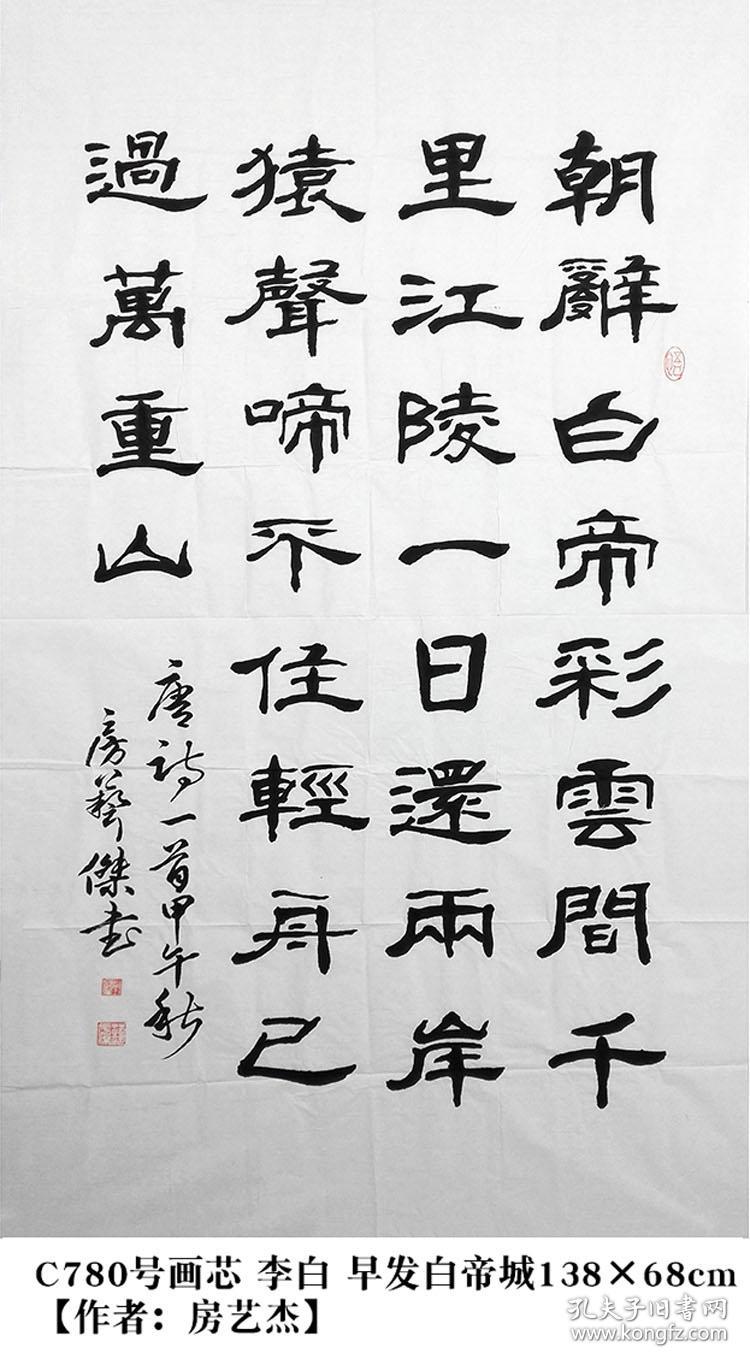 朝辭白帝彩雲間千
里江陵一日還兩岸
猿聲啼不住輕舟已
過萬重山
唐詩一首甲午秋
房藝傑书
C780号画芯 李白 早发白帝城138×68cm
【作者：房艺杰】
孔夫子旧书网
www.kongfz.com